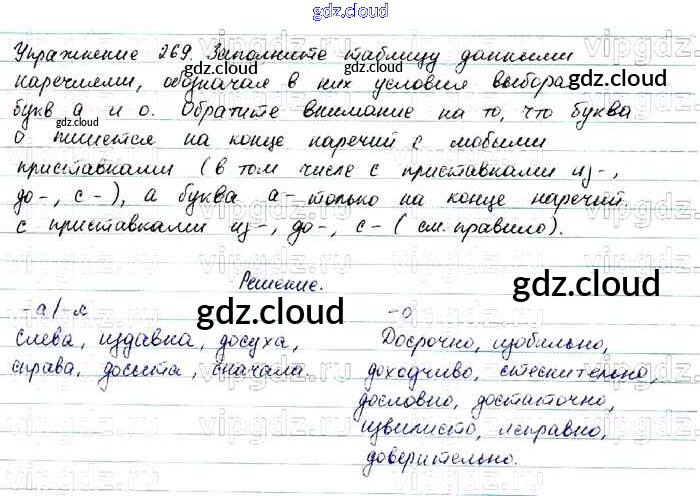 gdz.cloud
Упражнение 269. Заполните таблицу данными
наречиями, обозначая в них условия выбора
букв а и о. Обратите внимание на то, что буква
о пишется на конце наречий с любыми
приставками (в том числе с приставками из-,
до-, с-), а буква а - только на конце наречий
с приставками из-, до-, с- (см. правило).
Решение.
-а/-я
Слева, издавна, досуха,
справа, досыта, сначала.
-о
Досрочно, изобильно,
доходчиво, стеснительно,
дословно, достаточно,
извилисто, исправно,
доверительно.